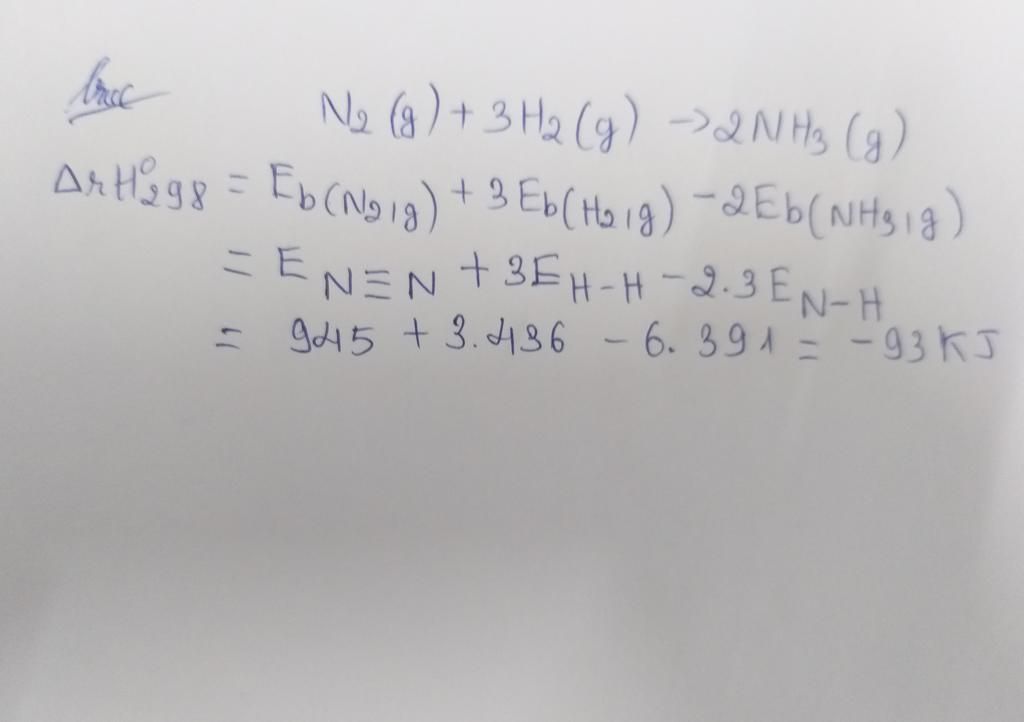 N₂ (g) + 3H₂ (g) → 2NH₃ (g)
ΔrH⁰₂₉₈ = Eb(N₂,g) + 3Eb(H₂,g) - 2Eb(NH₃,g)
= E N≡N + 3E H-H - 2.3 E N-H
= 945 + 3.436 - 6.391 = -93 KJ